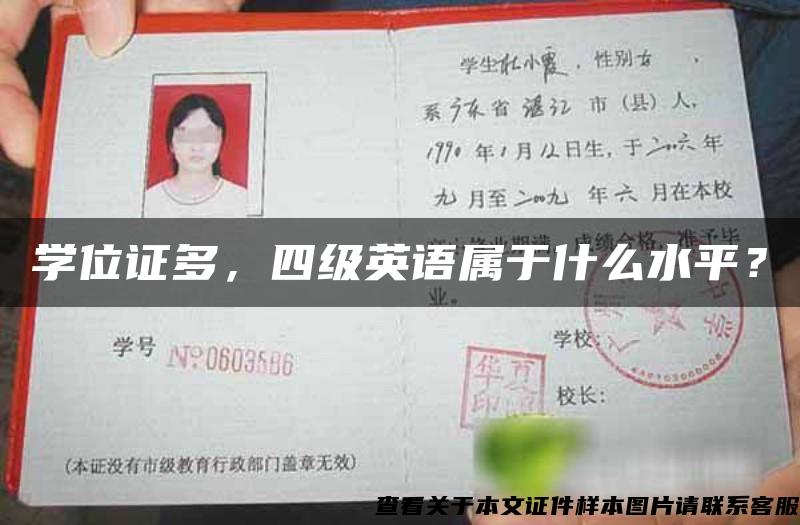 学生杜小霞，性别女，
系广东省湛江市（县）人，
1990年1月12日生，于二00六年
九月至二00九年六月在本校
学位证多，四级英语属于什么水平？
业。
学号 No0603586
学校：
华夏
印
校长：
（本证没有市级教育行政部门盖章无效）
查看关于本文证件样本图片请联系客服